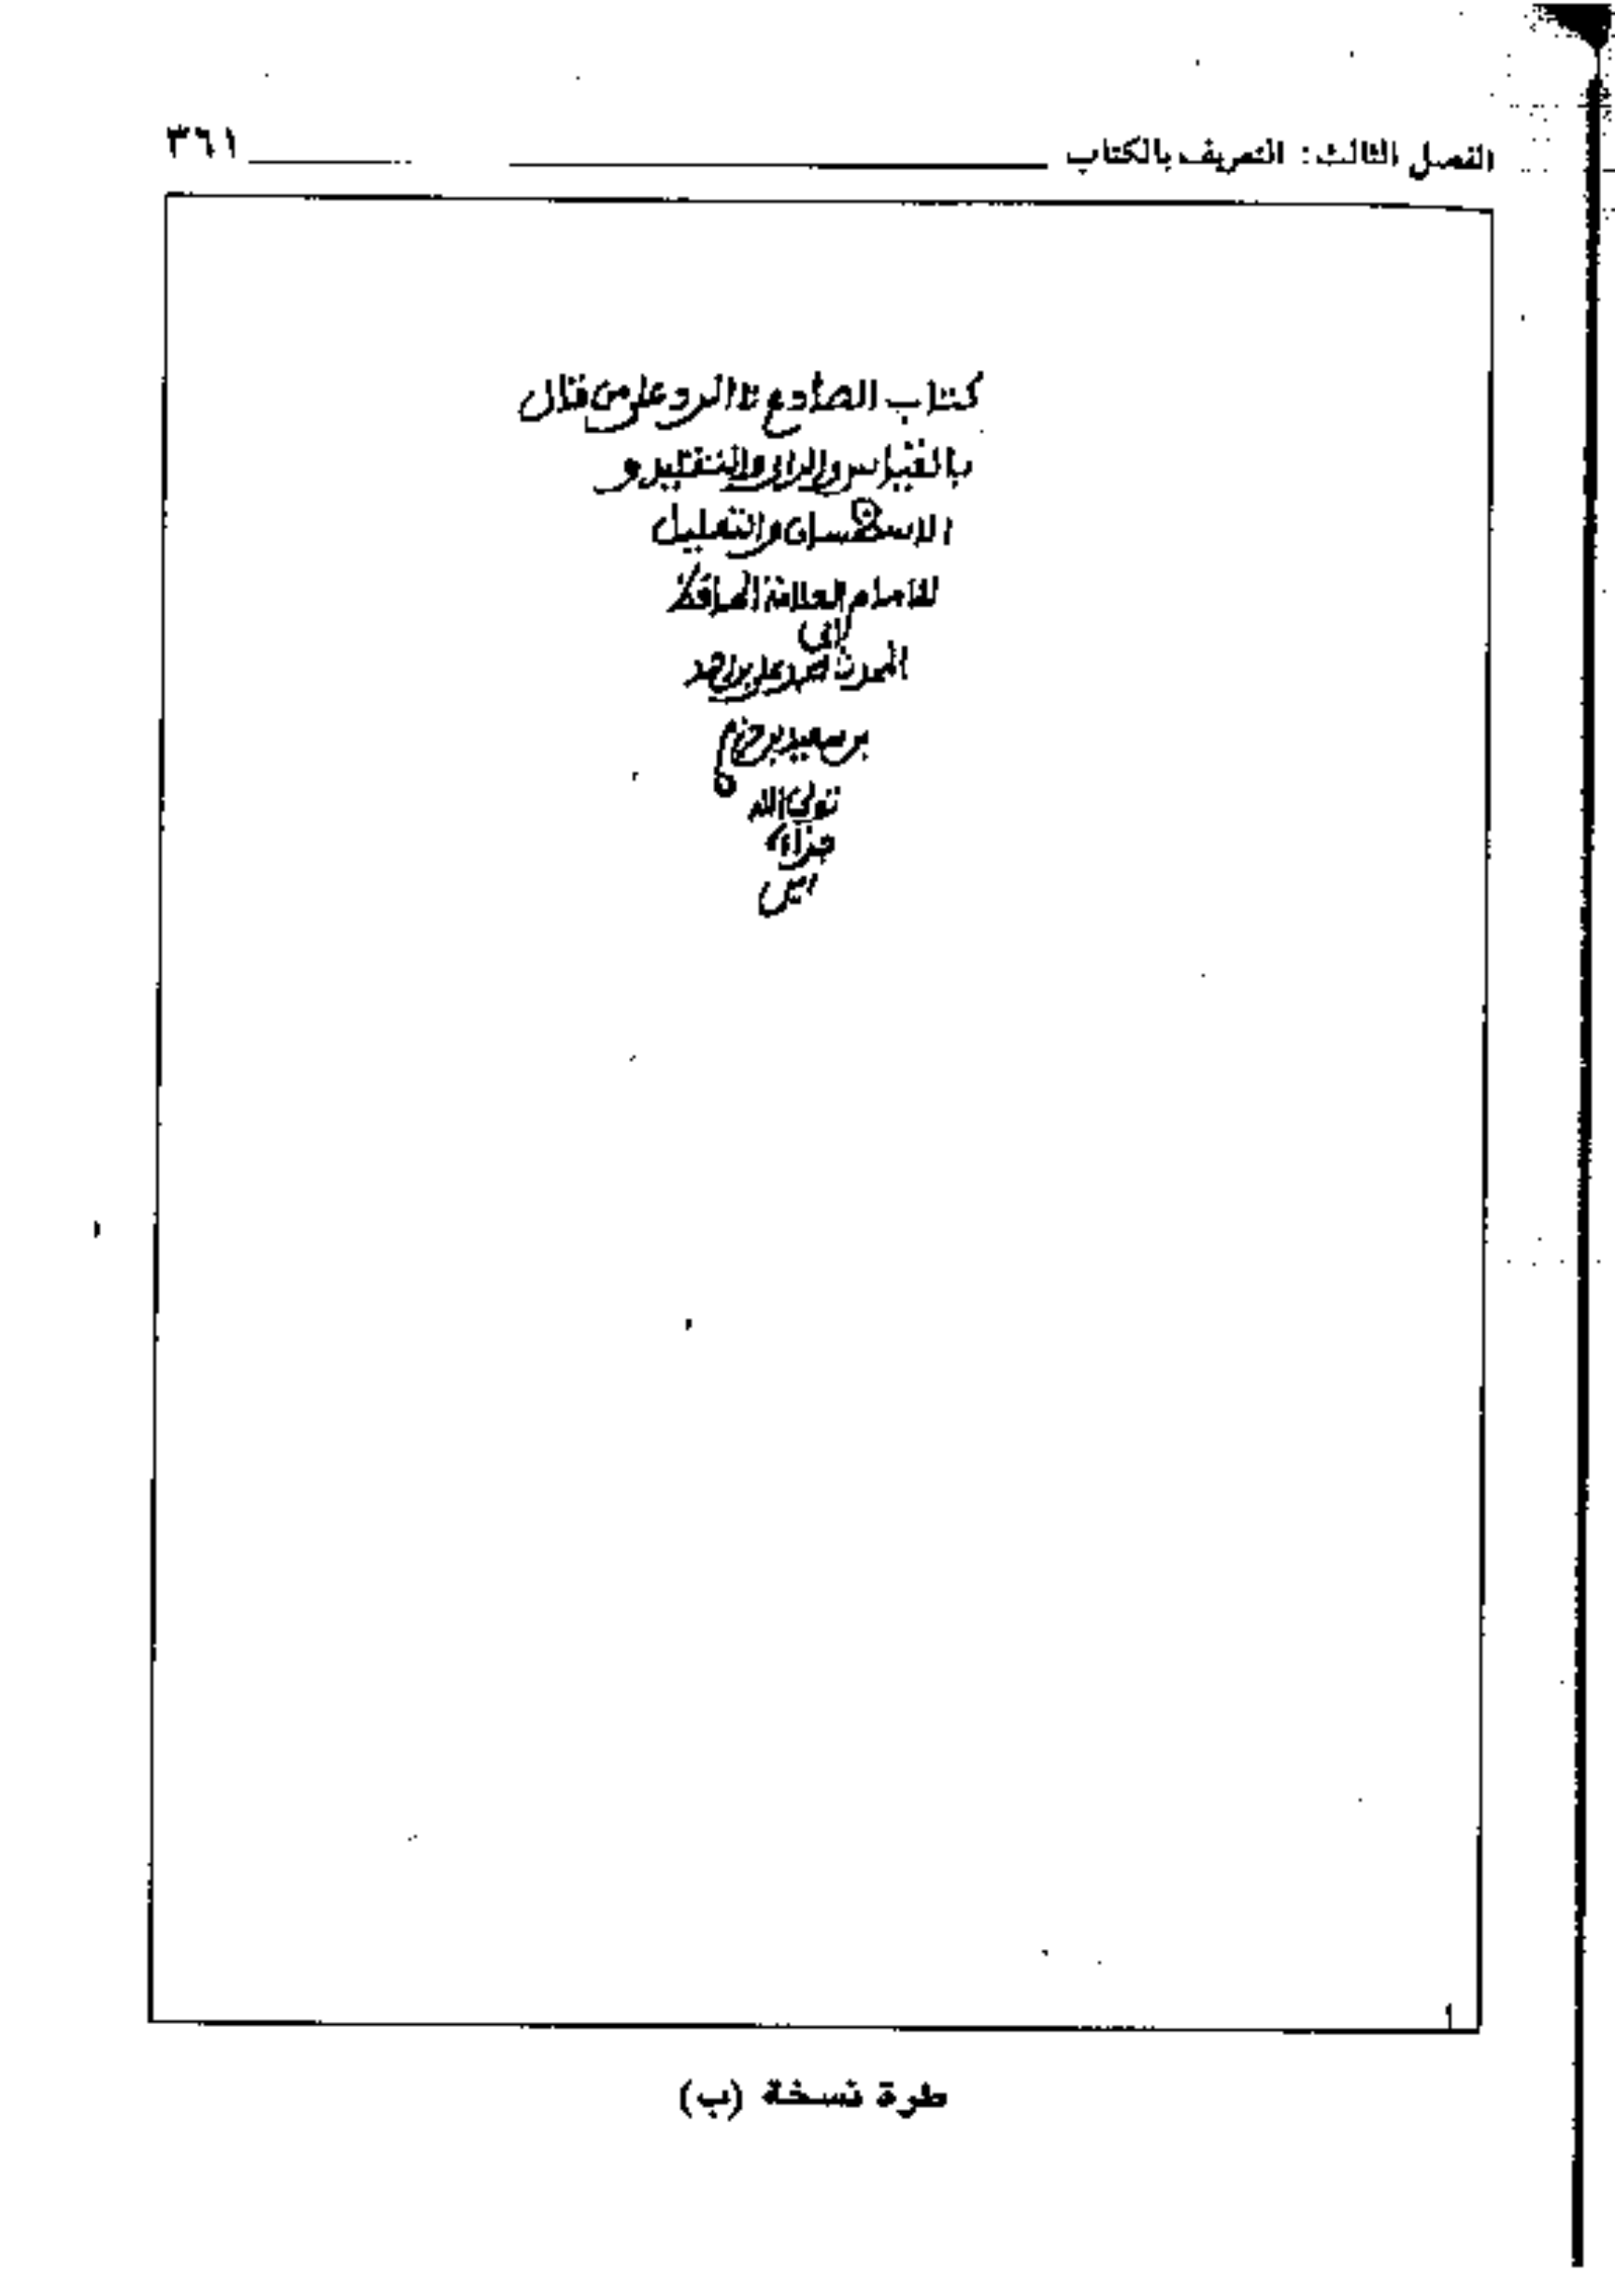 الفصل الثالث: التعريف بالكتاب ٣٦١
كتاب الصادع في الرد على من قال
بالقياس والراي والتقليد و
الاستحسان والتعليل
للامام العلامة الحافظ
ابى
احمد على بن احمد
بن سعيد بن حزم
تولى الله
جزاءه
امين
١
طرة نسخة (ب)